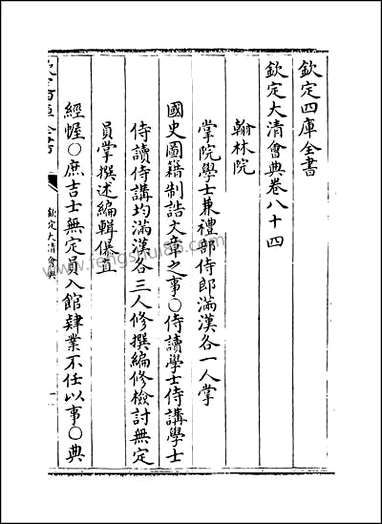 欽定四庫全書
欽定大清會典卷八十四
翰林院
掌院學士兼禮部侍郎滿漢各一人掌
國史圖籍制誥文章之事〇侍讀學士侍講學士
侍讀侍講均滿漢各三人修撰編修檢討無定
員掌撰述編輯倮直
經幄〇庶吉士無定員入館肄業不任以事〇典
欽定大清會典